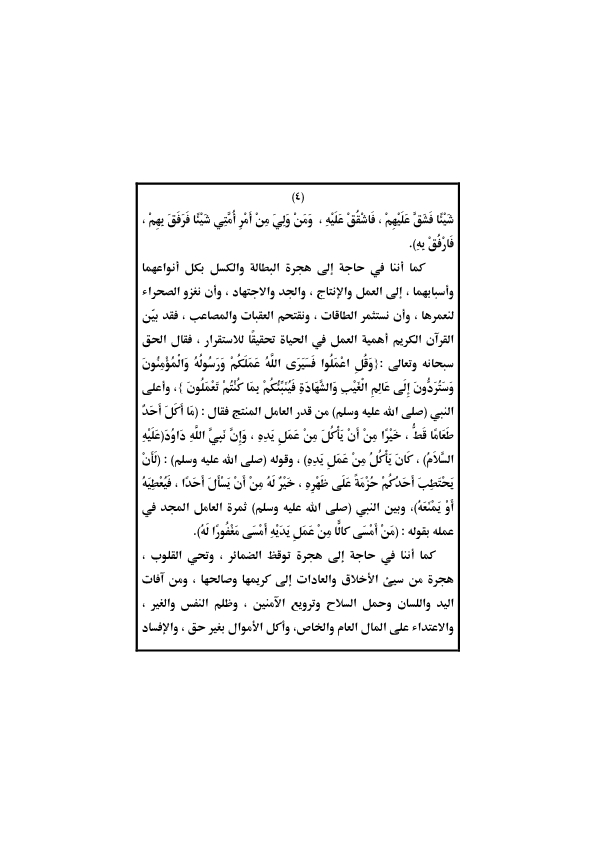 (٤)
شَيْئًا فَشَقَّ عَلَيْهِمْ ، فَاشْقُقْ عَلَيْهِ ، وَمَنْ وَلِيَ مِنْ أَمْرِ أُمَّتِي شَيْئًا فَرَفَقَ بِهِمْ ،
فَارْفُقْ بِهِ).
كما أننا في حاجة إلى هجرة البطالة والكسل بكل أنواعهما
وأسبابهما ، إلى العمل والإنتاج ، والجد والاجتهاد ، وأن نغزو الصحراء
لنعمرها ، وأن نستثمر الطاقات ، ونقتحم العقبات والمصاعب ، فقد بيّن
القرآن الكريم أهمية العمل في الحياة تحقيقًا للاستقرار ، فقال الحق
سبحانه وتعالى :{وَقُلِ اعْمَلُوا فَسَيَرَى اللَّهُ عَمَلَكُمْ وَرَسُولُهُ وَالْمُؤْمِنُونَ
وَسَتُرَدُّونَ إِلَى عَالِمِ الْغَيْبِ وَالشَّهَادَةِ فَيُنَبِّئُكُمْ بِمَا كُنْتُمْ تَعْمَلُونَ }، وأعلى
النبي (صلى الله عليه وسلم) من قدر العامل المنتج فقال : (مَا أَكَلَ أَحَدٌ
طَعَامًا قَطُّ ، خَيْرًا مِنْ أَنْ يَأْكُلَ مِنْ عَمَلِ يَدِهِ ، وَإِنَّ نَبِيَّ اللَّهِ دَاوُدَ(عَلَيْهِ
السَّلاَمُ) ، كَانَ يَأْكُلُ مِنْ عَمَلِ يَدِهِ) ، وقوله (صلى الله عليه وسلم) : (لَأَنْ
يَحْتَطِبَ أَحَدُكُمْ حُزْمَةً عَلَى ظَهْرِهِ ، خَيْرٌ لَهُ مِنْ أَنْ يَسْأَلَ أَحَدًا ، فَيُعْطِيَهُ
أَوْ يَمْنَعَهُ)، وبين النبي (صلى الله عليه وسلم) ثمرة العامل المجد في
عمله بقوله : (مَنْ أَمْسَى كالًّا مِنْ عَمَلِ يَدَيْهِ أَمْسَى مَغْفُورًا لَهُ).
كما أننا في حاجة إلى هجرة توقظ الضمائر ، وتحي القلوب ،
هجرة من سيئ الأخلاق والعادات إلى كريمها وصالحها ، ومن آفات
اليد واللسان وحمل السلاح وترويع الآمنين ، وظلم النفس والغير ،
والاعتداء على المال العام والخاص، وأكل الأموال بغير حق ، والإفساد